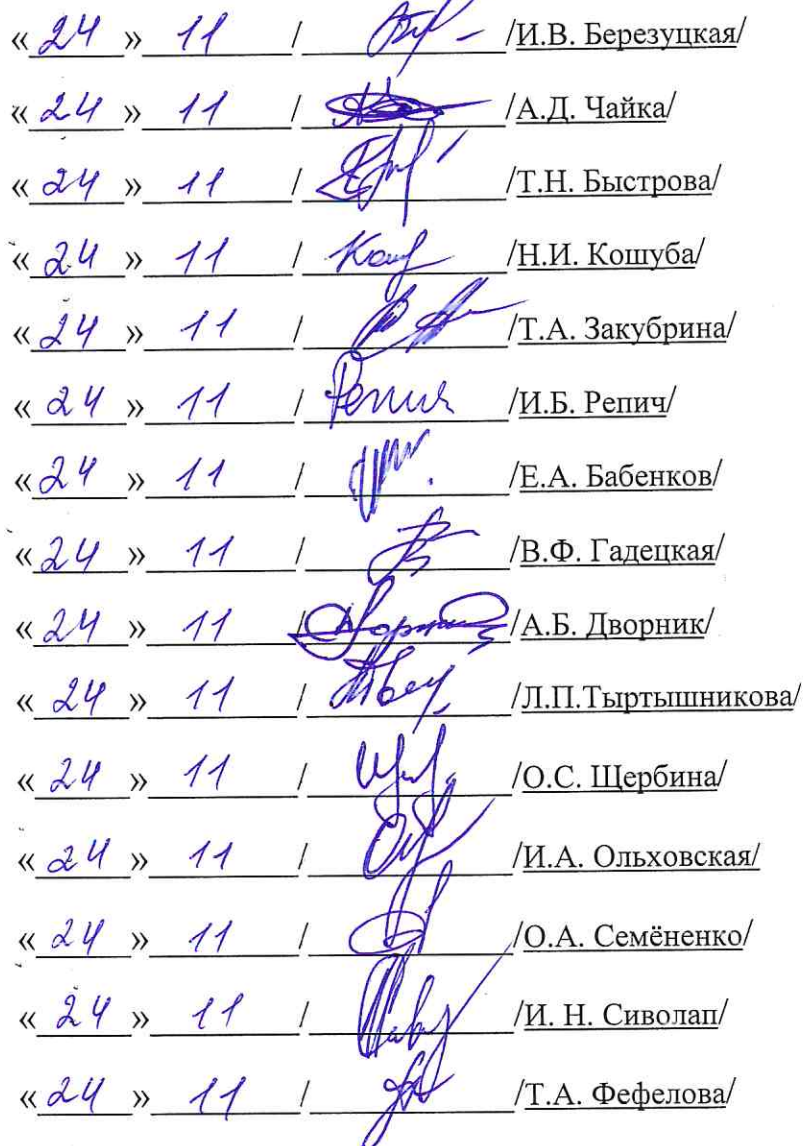 « 24 » 11 / /И.В. Березуцкая/
« 24 » 11 / /А.Д. Чайка/
« 24 » 11 / /Т.Н. Быстрова/
« 24 » 11 / /Н.И. Кошуба/
« 24 » 11 / /Т.А. Закубрина/
« 24 » 11 / Репич /И.Б. Репич/
« 24 » 11 / /Е.А. Бабенков/
« 24 » 11 / /В.Ф. Гадецкая/
« 24 » 11 / /А.Б. Дворник/
« 24 » 11 / /Л.П.Тыртышникова/
« 24 » 11 / /О.С. Щербина/
« 24 » 11 / /И.А. Ольховская/
« 24 » 11 / /О.А. Семёненко/
« 24 » 11 / /И. Н. Сиволап/
« 24 » 11 / /Т.А. Фефелова/